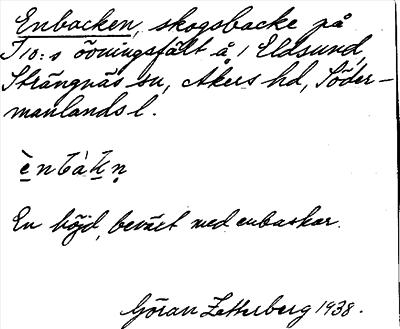 Enbacken, skogsbacke på
I 10:s övningsfält å / Eldsund,
Strängnäs sn, Åkers hd, Söder-
manlands l.
è̱nbàḵṇ
En höjd, beväxt med enbuskar.
Göran Zetterberg 1938.